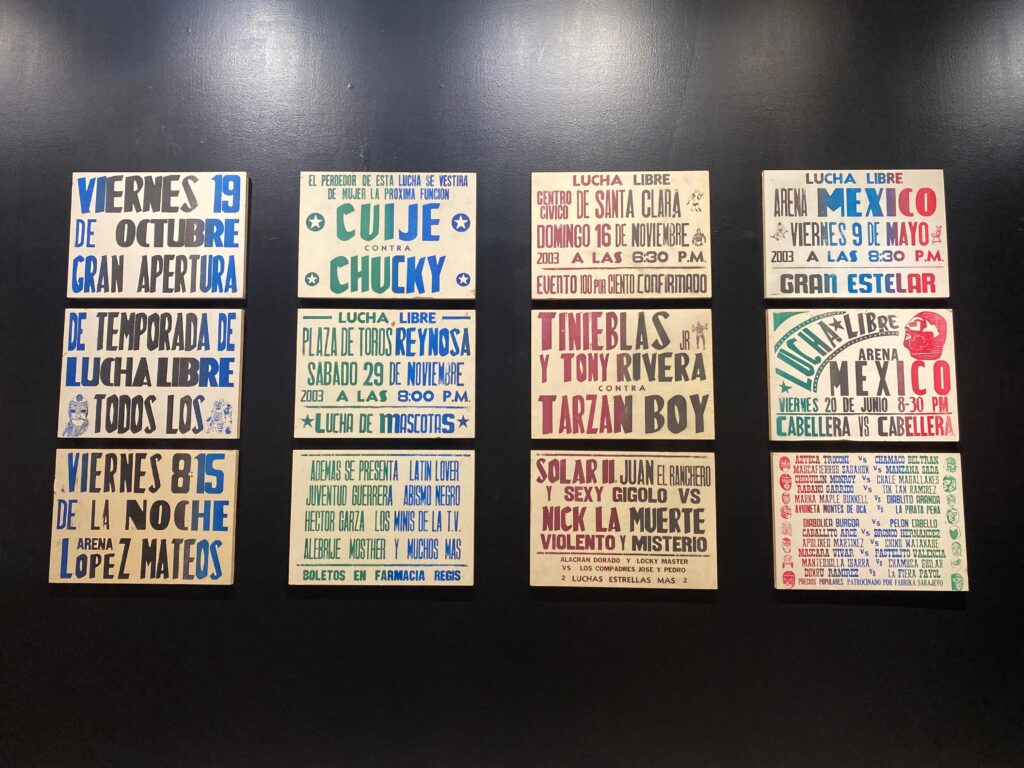 VIERNES 19
DE OCTUBRE
GRAN APERTURA
DE TEMPORADA DE
LUCHA LIBRE
TODOS LOS
VIERNES 8:15
DE LA NOCHE
ARENA
LOPEZ MATEOS
EL PERDEDOR DE ESTA LUCHA SE VESTIRA
DE MUJER LA PROXIMA FUNCION
CUIJE
CONTRA
CHUCKY
LUCHA LIBRE
PLAZA DE TOROS REYNOSA
SABADO 29 DE NOVIEMBRE
2003 A LAS 8:00 P.M.
LUCHA DE MASCOTAS
ADEMAS SE PRESENTA LATIN LOVER
JUVENTUD GUERRERA ABISMO NEGRO
HECTOR GARZA LOS MINIS DE LA T.V.
ALEBRIJE MOSTHER Y MUCHOS MAS
BOLETOS EN FARMACIA REGIS
LUCHA LIBRE
CENTRO CIVICO DE SANTA CLARA
DOMINGO 16 DE NOVIEMBRE
2003 A LAS 6:30 P.M.
EVENTO 100 POR CIENTO CONFIRMADO
TINIEBLAS JR
Y TONY RIVERA
CONTRA
TARZAN BOY
SOLAR II. JUAN EL RANCHERO
Y SEXY GIGOLO VS
NICK LA MUERTE
VIOLENTO Y MISTERIO
ALACRAN DORADO Y LOCKY MASTER
VS LOS COMPADRES JOSE Y PEDRO
2 LUCHAS ESTRELLAS MAS 2
LUCHA LIBRE
ARENA MEXICO
VIERNES 9 DE MAYO
2003 A LAS 8:30 P.M.
GRAN ESTELAR
LUCHA LIBRE
ARENA
MEXICO
VIERNES 20 DE JUNIO 8-30 PM
CABELLERA VS CABELLERA
AZTECA TROCONI VS CHAMACO BELTRAN
MASCAFIERROS SABANON VS MANZANA SADA
CHIQUILIN MONROY VS CHALE MAGALLANES
RABANO GARRIDO VS TIN TAN RAMIREZ
MAGMA MAPLE BUNNELL VS DIABLITO ARANDA
AVIONETA MONTES DE OCA VS LA PRATA PEÑA
DIABOLICA BURGOA VS PELON CABELLO
CABALLITO ARCE VS BRONCO HERNANDEZ
APULINED MARTINEZ VS CHINO WATANABE
MASCARA VIVAR VS PASTELITO VALENCIA
MANTEQUILLA IBARRA VS CHAMUCA GUILAR
RAMIREZ VS LA FIERA PATOL
PRECIOS POPULARES PATROCINADO POR FABRIKA SARAJEVO